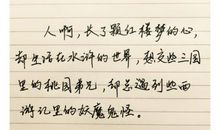 人啊，长了颗红楼梦的心，
却生活在水浒的世界，想交些三国
里的桃园弟兄，却总遇到些西
游记里的妖魔鬼怪。